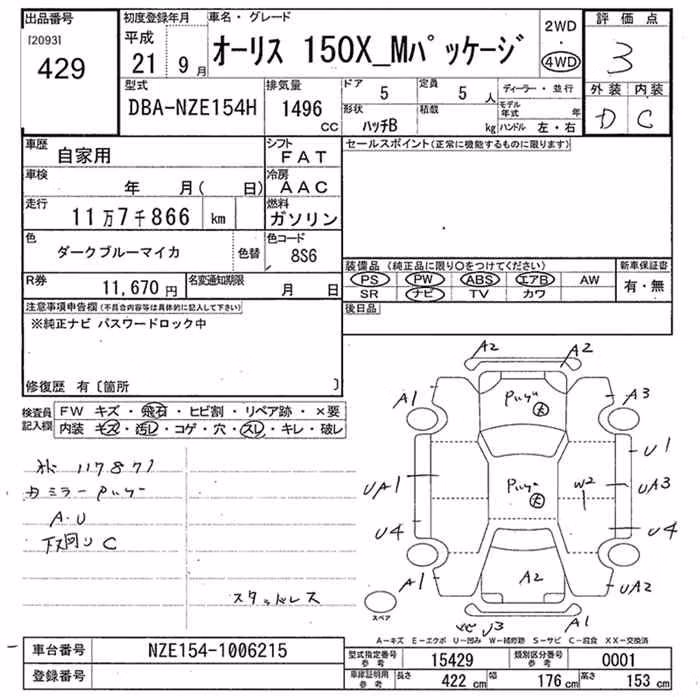 出品番号
[2093]
429
初度登録年月
平成
21 9月
車名・グレード
オーリス 150X_Mパッケージ
2WD
・
4WD
評価点
3
外装 内装
D C
型式
DBA-NZE154H
排気量
1496
cc
ドア
5
定員
5 人
形状
ハッチB
積載
kg
ディーラー・並行
モデル年式 年
ハンドル 左・右
車歴
自家用
シフト
FAT
車検
年 月( 日)
冷房
AAC
走行
11万7千866 km
燃料
ガソリン
色
ダークブルーマイカ
色替
色コード
8S6
R券
11,670 円
名変通知期限
月 日
セールスポイント(正常に機能するものに限ります)
装備品(純正品に限り○をつけてください)
PS PW ABS エアB AW
SR ナビ TV カワ
新車保証書
有・無
後日品
注意事項申告欄(不具合内容等は具体的に記入して下さい)
※純正ナビ パスワードロック中
修復歴 有〔箇所 〕
検査員記入欄
FW キズ・飛石・ヒビ割・リペア跡・×要
内装 キズ・汚レ・コゲ・穴・スレ・キレ・破レ
117871
A・U
下回り C
スタッドレス
A2 A2
A1 A3
U1
UA1 W2 UA3
U4 U4
A2
A1 UA2
A1
スペア
A−キズ E−エクボ U−凹み W−補修跡 S−サビ C−腐食 XX−交換済
車台番号
NZE154-1006215
登録番号
型式指定番号 参考
15429
類別区分番号 参考
0001
車庫証明用 参考
長さ 422 cm
幅 176 cm
高さ 153 cm